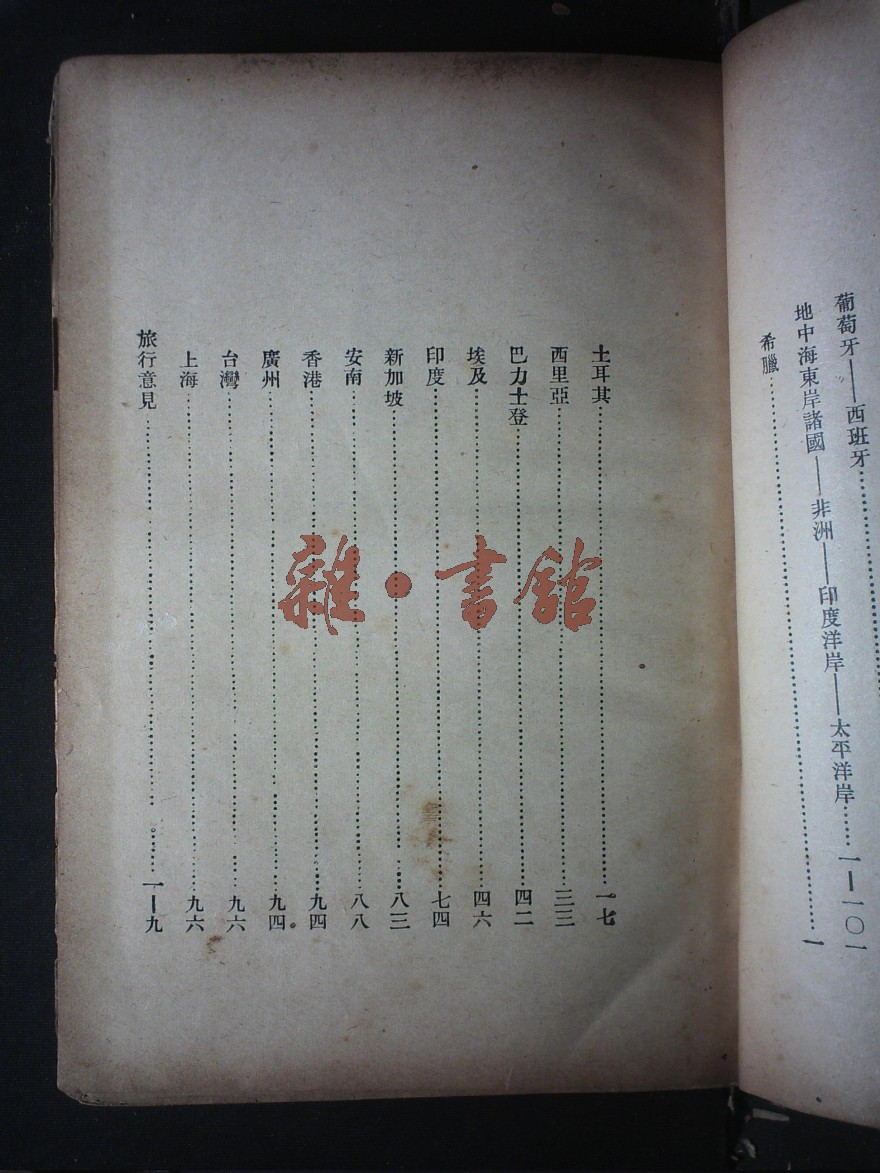 葡萄牙——西班牙……
地中海東岸諸國——非洲——印度洋岸——太平洋岸……一—一〇一
希臘……一
土耳其……一七
西里亞……三三
巴力士登……四二
埃及……四六
印度……七四
新加坡……八三
安南……八八
香港……九四
廣州……九四
台灣……九六
上海……九六
旅行意見……一—九
雜·書館